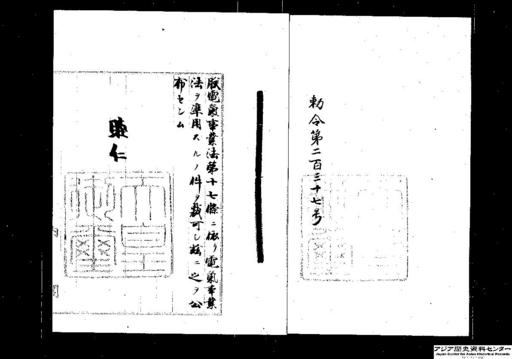 勅令第二百三十七号
朕電氣事業法第十七條ニ依リ電氣事業
法ヲ準用スルノ件ヲ裁可シ茲ニ之ヲ公
布セシム
睦仁
天皇
御璽
アジア歴史資料センター
Japan Center for Asian Historical Records